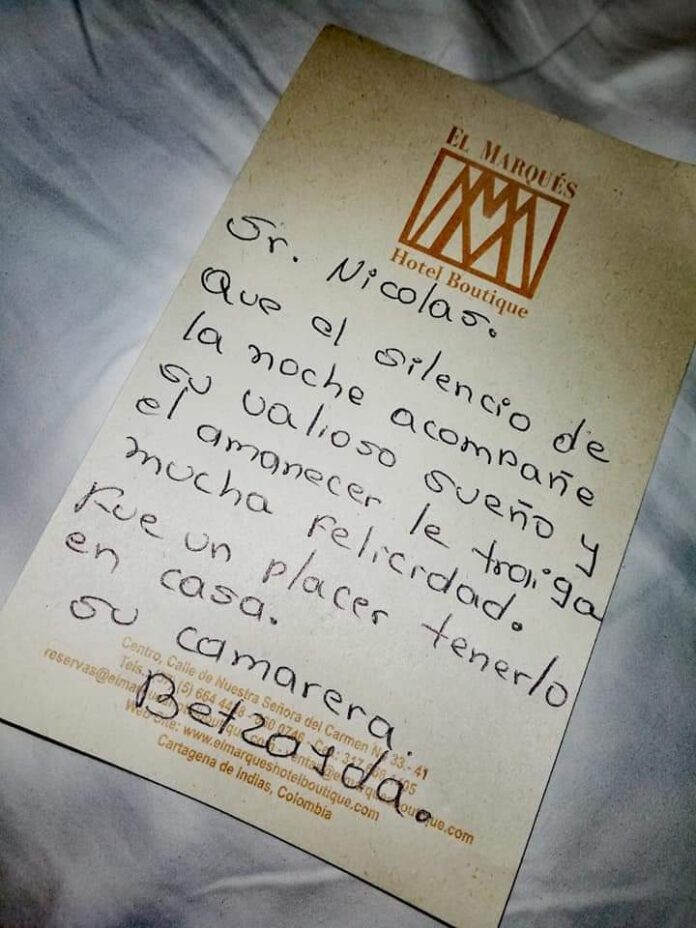 EL MARQUÉS
Hotel Boutique
Sr. Nicolas.
Que el silencio de
la noche acompañe
su valioso sueño y
el amanecer le traiga
mucha felicidad.
Fue un placer tenerlo
en casa.
su camarera.
Betzaida.
Centro, Calle de Nuestra Señora del Carmen No 33.- 41
Tels. (5) 664 44
reservas@elmarques
Web Site: www.elmarqueshotelboutique.com
Cartagena de Indias, Colombia